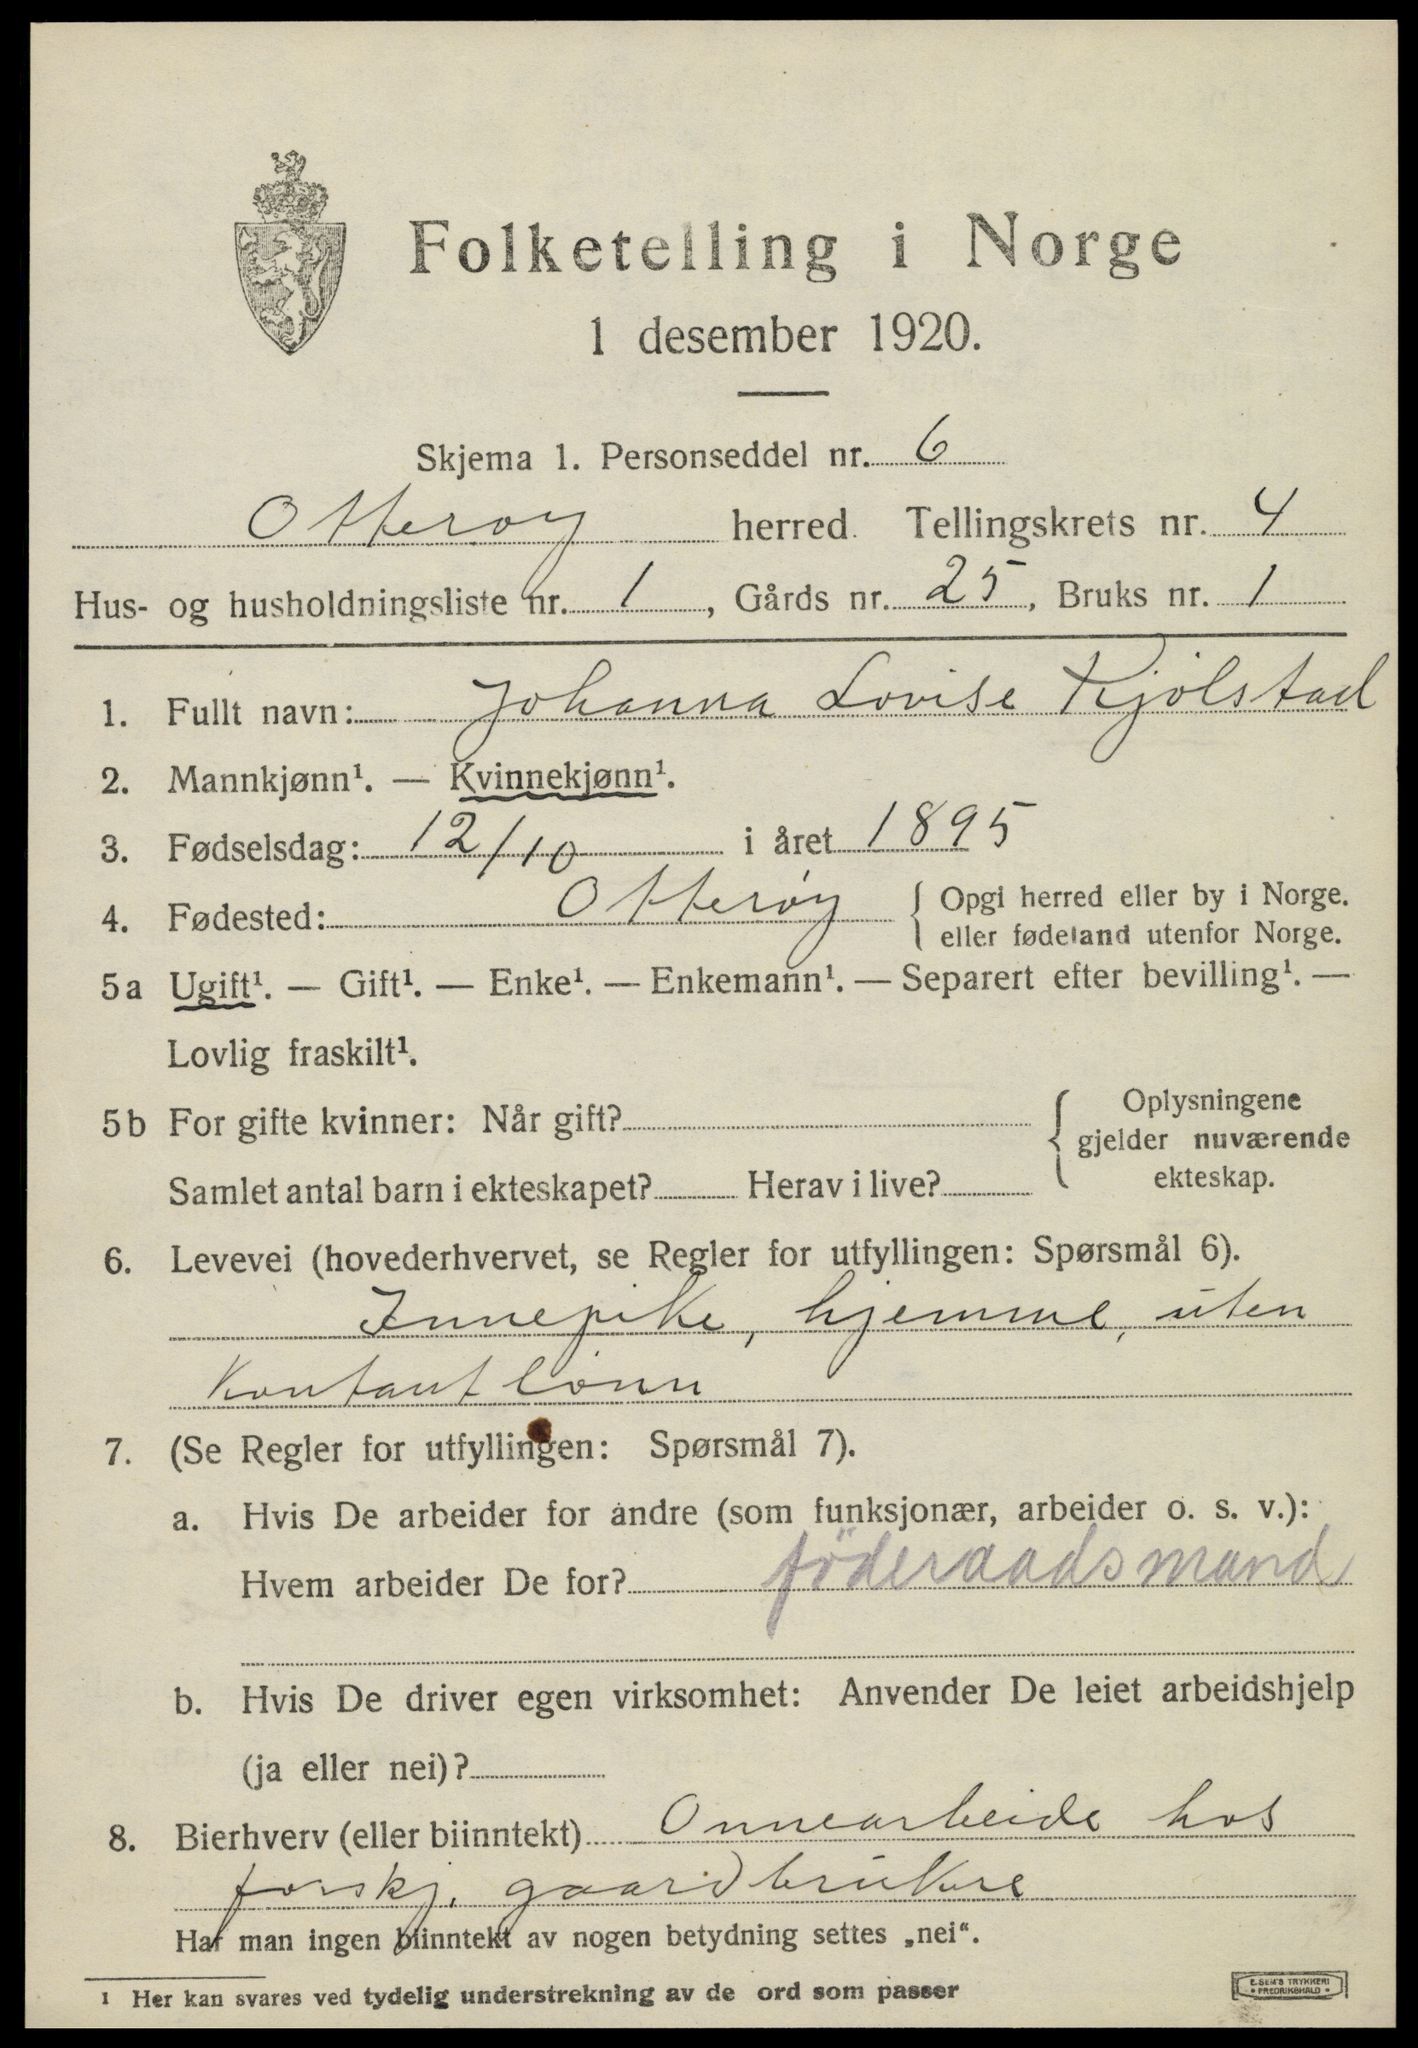 Folketelling i Norge
1 desember 1920.
Skjema 1. Personseddel nr. 6
Otterøy herred. Tellingskrets nr. 4
Hus- og husholdningsliste nr. 1, Gårds nr. 25, Bruks nr. 1
1. Fullt navn: Johanna Lovise Kjølstad
2. Mannkjønn¹. — Kvinnekjønn¹.
3. Fødselsdag: 12/10 i året 1895
4. Fødested: Otterøy { Opgi herred eller by i Norge.
eller fødeland utenfor Norge.
5a Ugift¹. — Gift¹. — Enke¹. — Enkemann¹. — Separert efter bevilling¹. —
Lovlig fraskilt¹.
5b For gifte kvinner: Når gift?
Samlet antal barn i ekteskapet? Herav i live?
{ Oplysningene
gjelder nuværende
ekteskap.
6. Levevei (hovederhvervet, se Regler for utfyllingen: Spørsmål 6).
Innepike, hjemme, uten
kontant lönn
7. (Se Regler for utfyllingen: Spørsmål 7).
a. Hvis De arbeider for andre (som funksjonær, arbeider o. s. v.):
Hvem arbeider De for? föderaadsmand
b. Hvis De driver egen virksomhet: Anvender De leiet arbeidshjelp
(ja eller nei)?
8. Bierhverv (eller biinntekt) Onnearbeide hos
forskj. gaardbrukere
Har man ingen biinntekt av nogen betydning settes „nei“.
1 Her kan svares ved tydelig understrekning av de ord som passer
E. SEM'S TRYKKERI
FREDRIKSHALD